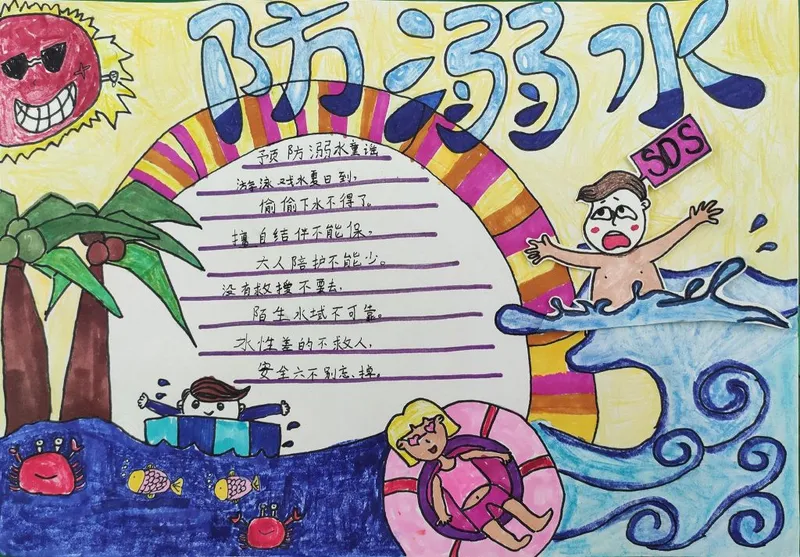 防溺水
SOS
预防溺水童谣
游泳戏水夏日到,
偷偷下水不得了。
擅自结伴不能保,
大人陪护不能少。
没有救援不要去,
陌生水域不可靠。
水性差的不救人,
安全六不别忘掉。